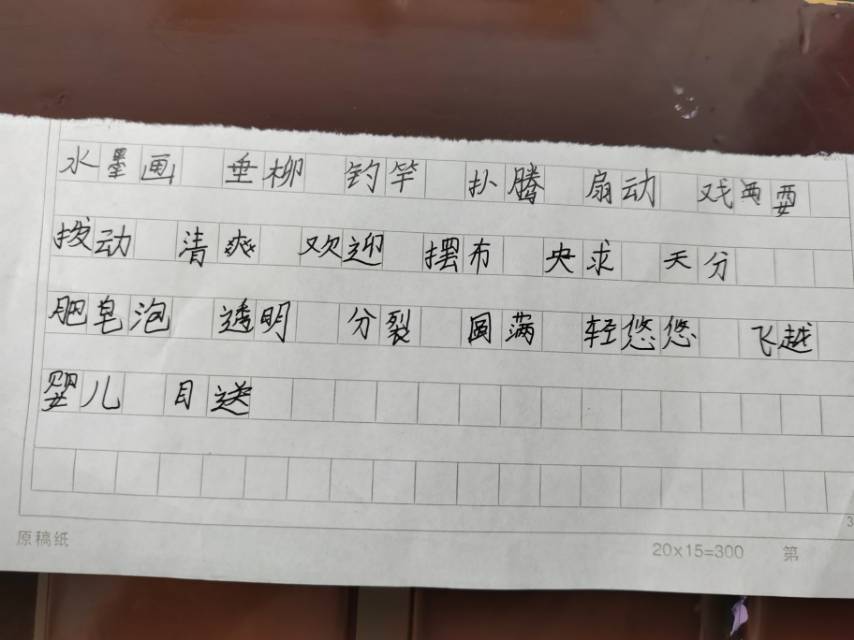 水墨画 垂柳 钓竿 扑腾 扇动 戏西要
拨动 清爽 欢迎 摆布 央求 天分
肥皂泡 透明 分裂 圆满 轻悠悠 飞越
婴儿 目送
原稿纸 20x15=300 第